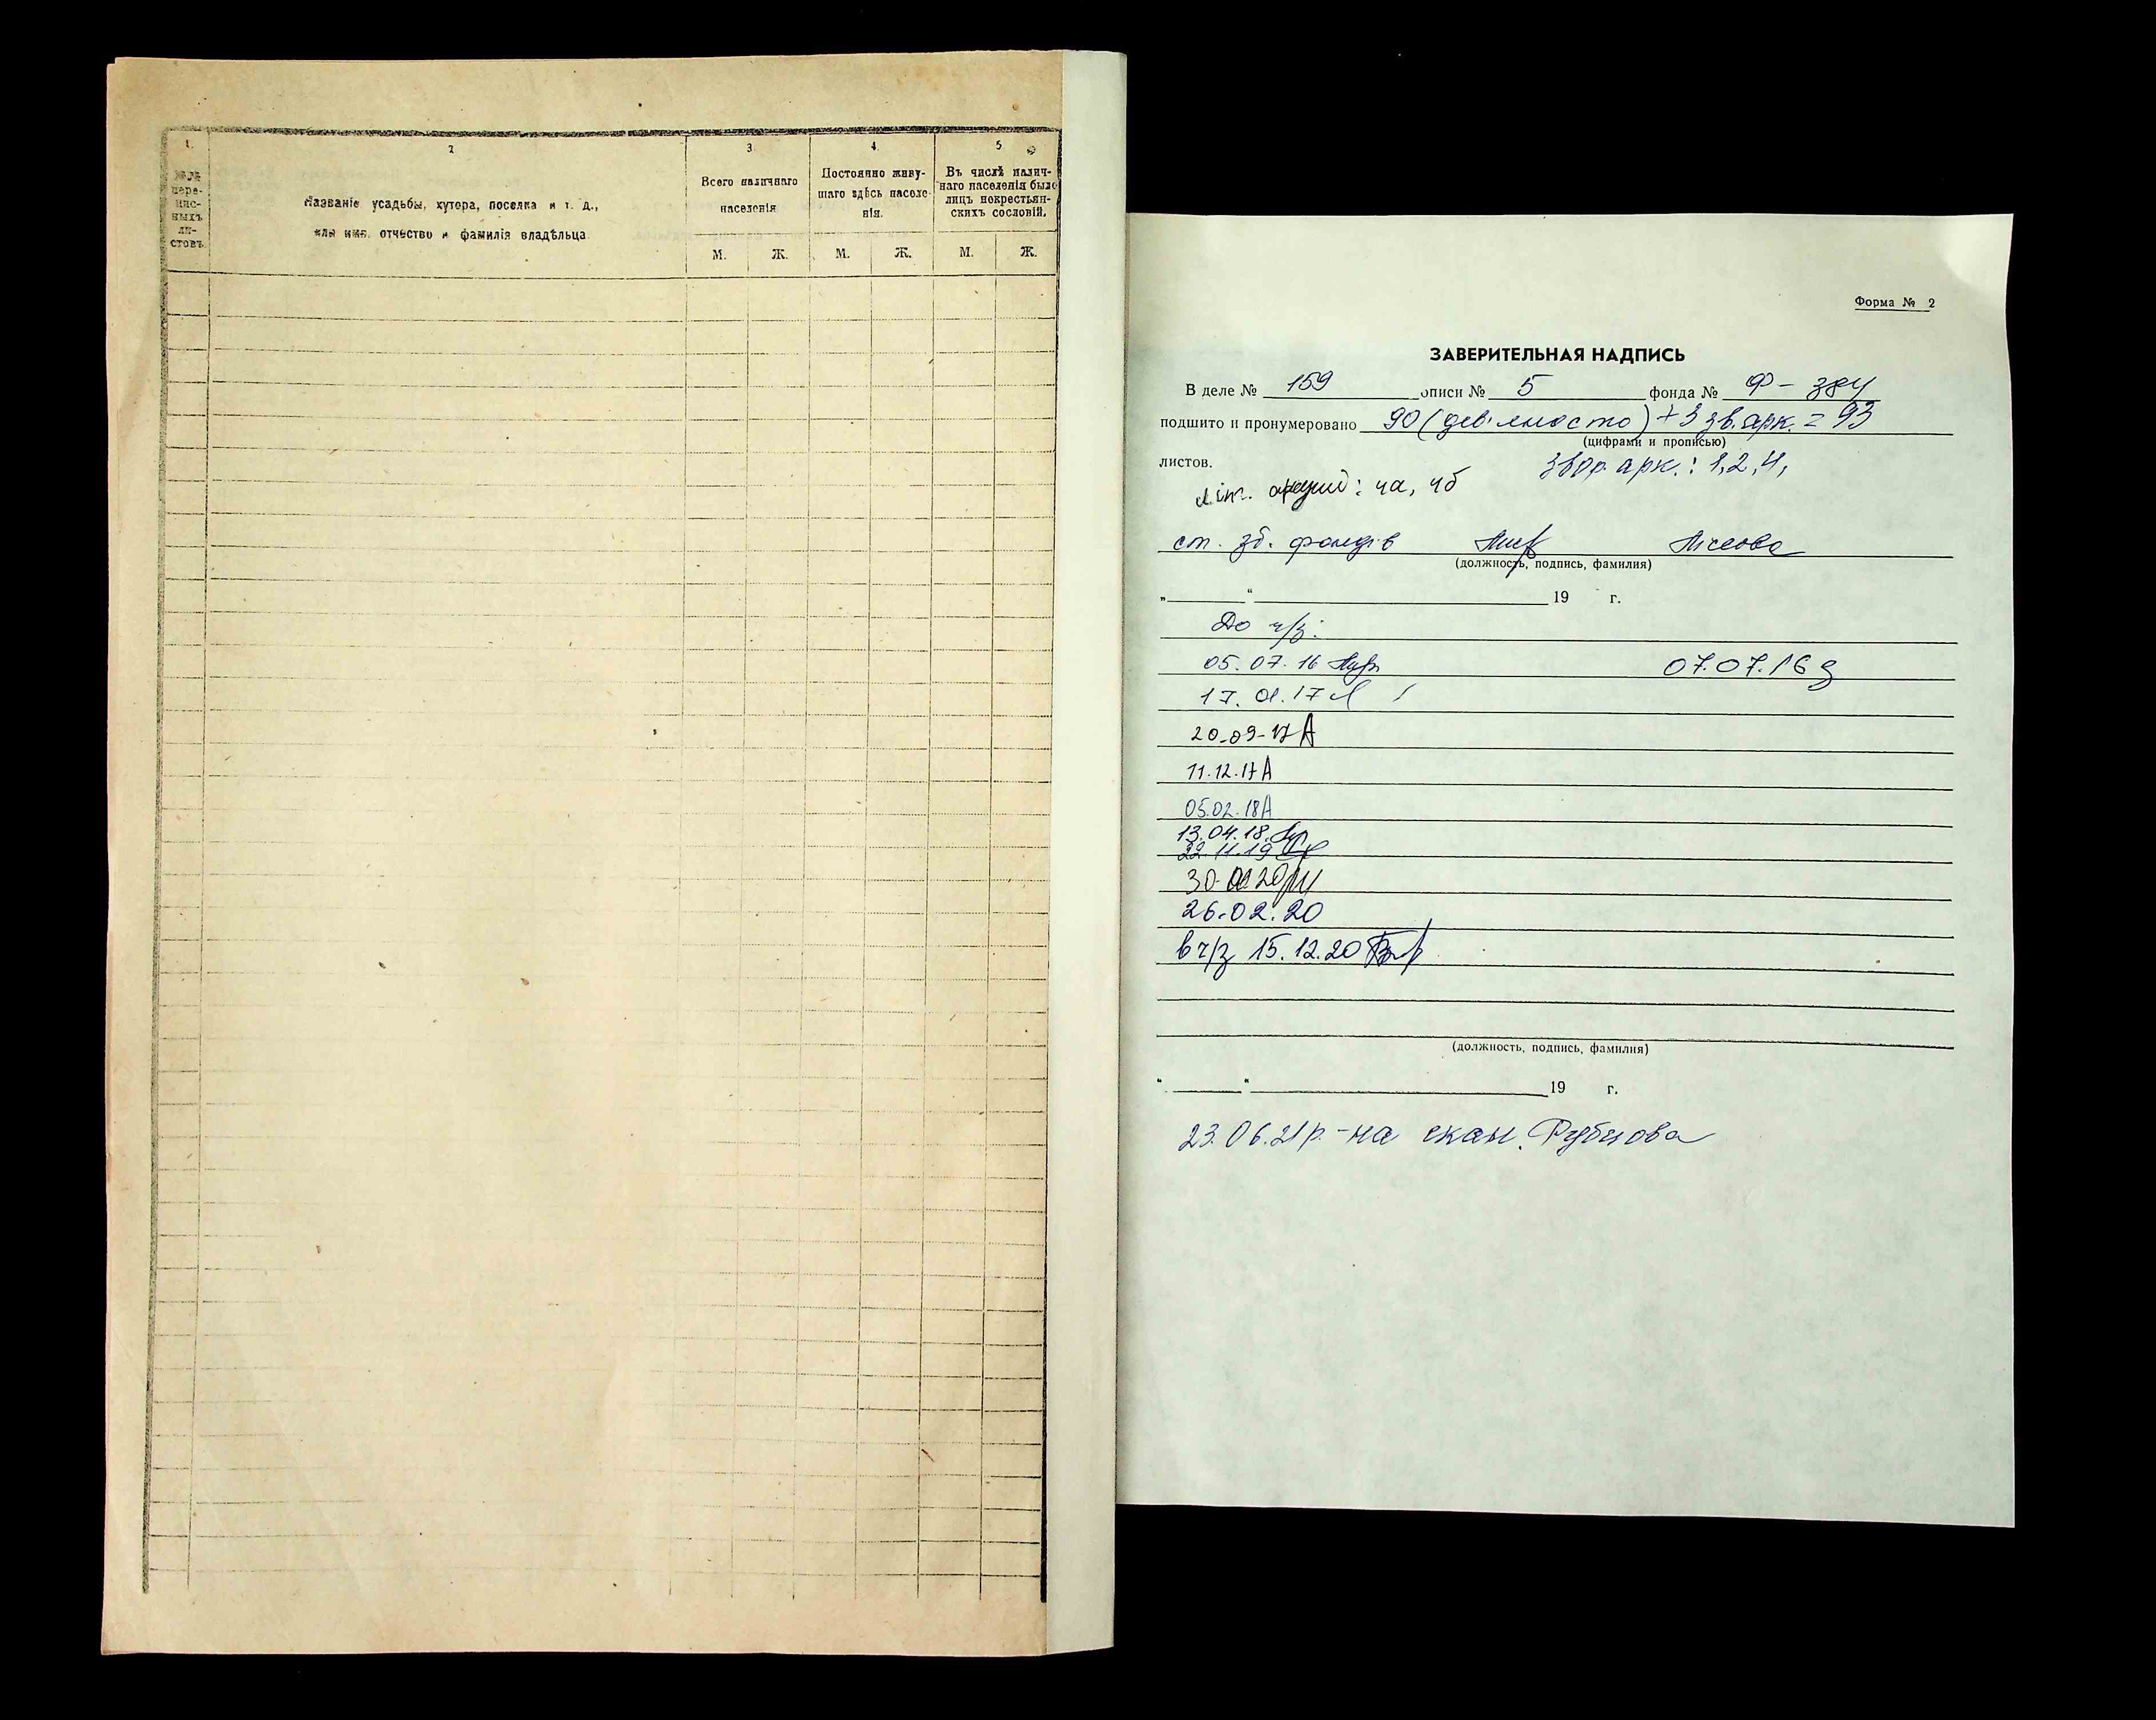 1.
№№ пере-
пис-
ныхъ
ли-
стовъ.
2
Названіе усадьбы, хутора, поселка и т. д.,
или имя, отчество и фамилія владѣльца.
3
Всего наличнаго
населенія
М. Ж.
4
Постоянно живу-
щаго здѣсь населе-
нія.
М. Ж.
5
Въ числѣ налич-
наго населенія было
лицъ некрестьян-
скихъ сословій.
М. Ж.
Форма № 2
ЗАВЕРИТЕЛЬНАЯ НАДПИСЬ
В деле № 159 описи № 5 фонда № Ф-384
подшито и пронумеровано 90 (дев'яносто) + 3 зв. арк. = 93
(цифрами и прописью)
листов. звор. арк.: 1, 2, 4,
літ. аркуші: 4а, 4б
ст. зб. фондів
(должность, подпись, фамилия)
„ “ 19 г.
До ч/з:
05.07.16 07.07.16
17.01.17
20-09-17 А
11.12.17 А
05.02.18 А
13.04.18.
22.11.19
30-01 20
26.02.20
в ч/з 15.12.20
(должность, подпись, фамилия)
“ “ 19 г.
23.06.21р. - на скан. Рубцова